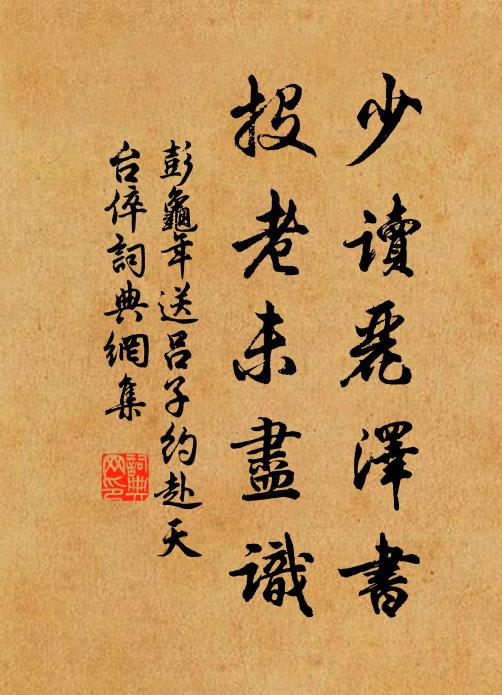 少讀麗澤書
投老未盡識
彭龜年送呂子約赴天
台倅詞典網集
詞典
网印